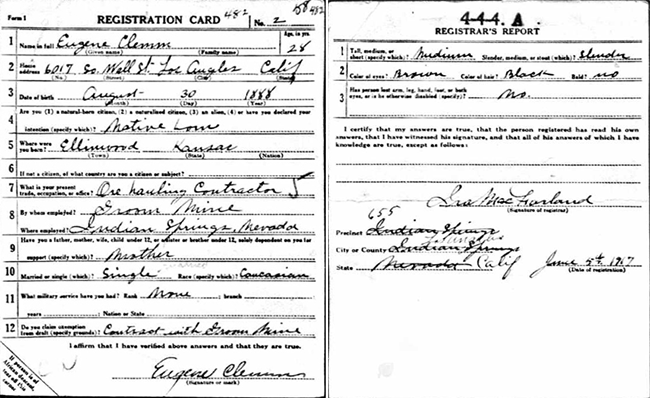 Form 1
REGISTRATION CARD
482
158 482
No. 2
1 Name in full Eugene Clemm
(Given name) (Family name)
Age, in yrs.
28
2 Home address 6017 So. Wall St. Los Angeles Calif
(No.) (Street) (City) (State)
3 Date of birth August 30 1888
(Month) (Day) (Year)
4 Are you (1) a natural-born citizen, (2) a naturalized citizen, (3) an alien, (4) or have you declared your
intention (specify which)? Native born
5 Where were you born? Ellinwood Kansas
(Town) (State) (Nation)
6 If not a citizen, of what country are you a citizen or subject?
7 What is your present trade, occupation, or office? Ore hauling Contractor
8 By whom employed? Groom Mine
Where employed? Indian Springs, Nevada
9 Have you a father, mother, wife, child under 12, or a sister or brother under 12, solely dependent on you for
support (specify which)? Mother
10 Married or single (which)? Single Race (specify which)? Caucasian
11 What military service have you had? Rank None ; branch
years ; Nation or State
12 Do you claim exemption from draft (specify grounds)? Contract with Groom Mine
I affirm that I have verified above answers and that they are true.
Eugene Clemm
(Signature or mark)
If person is of African descent, tear off this corner
444. A
REGISTRAR'S REPORT
1 Tall, medium, or short (specify which)? Medium Slender, medium, or stout (which)? Slender
2 Color of eyes? Brown Color of hair? Black Bald? no
3 Has person lost arm, leg, hand, foot, or both eyes, or is he otherwise disabled (specify)? No.
I certify that my answers are true, that the person registered has read his own
answers, that I have witnessed his signature, and that all of his answers of which I have
knowledge are true, except as follows:
Ira MacFarland
(Signature of registrar)
655
Precinct Indian Springs
City or County Indian Springs
State Nevada Calif
June 5th 1917
(Date of registration)